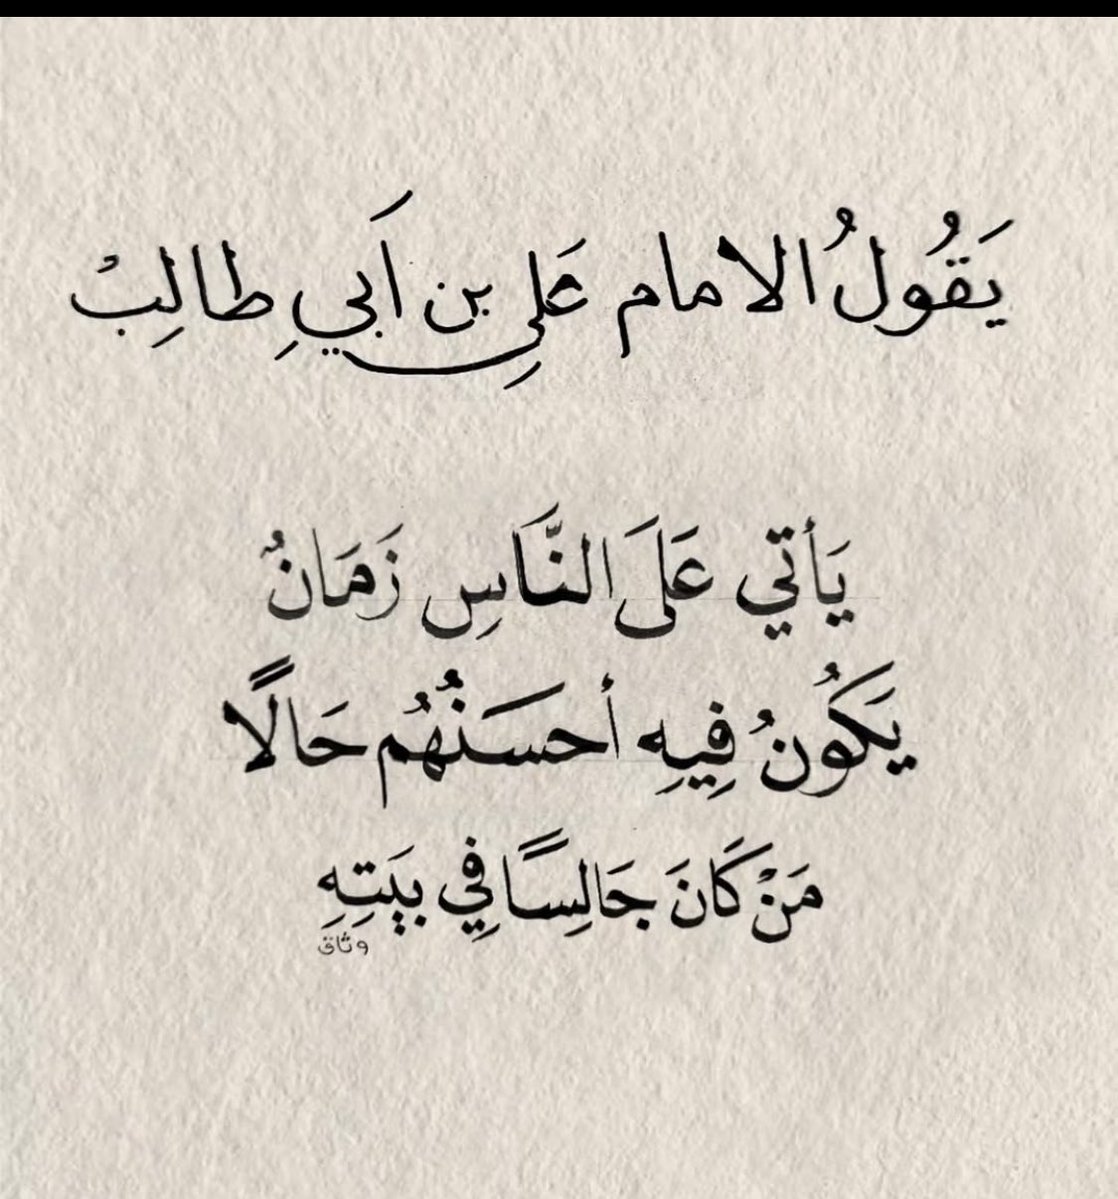 يَقُولُ الامام عَلي بن اَبيِ طالِبْ
يَأتي عَلَى النَّاسِ زَمَانٌ
يَكُونُ فِيِهِ أحسَنُهُم حَالًا
مَنْ كَانَ جَالِسًا فِي بَيتِهِ
وثاق